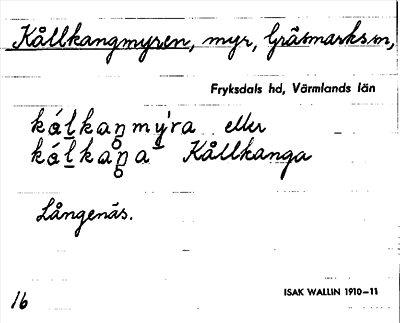 Kållkangmyren, myr, Gräsmarks sn,
Fryksdals hd, Värmlands län
kálkaŋmýra eller
kálkaŋa Kållkanga
Långenäs.
16
ISAK WALLIN 1910–11